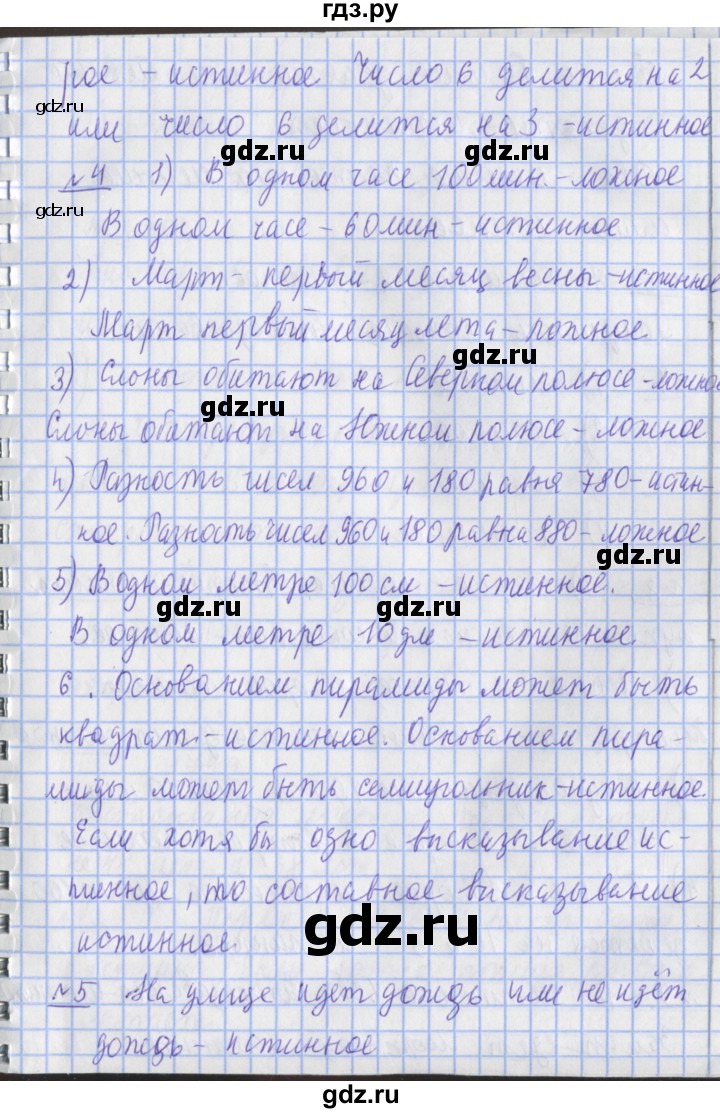 гдз.ру
рое - истинное Число 6 делится на 2
или число 6 делится на 3 - истинное
gdz.ru gdz.ru
№4 1) В одном часе 100 мин. - ложное
gdz.ru gdz.ru
В одном часе - 60 мин - истинное
2) Март - первый месяц весны - истинное
Март первый месяц лета - ложное
gdz.ru
3) Слоны обитают на Северном полюсе - ложное
gdz.ru
Слоны обитают на Южном полюсе - ложное
4) Разность чисел 960 и 180 равна 780 - истин-
ное. Разность чисел 960 и 180 равна 880 - ложное
gdz.ru
5) В одном метре 100 см - истинное.
gdz.ru gdz.ru
В одном метре 10 дм - истинное
6. Основанием пирамиды может быть
квадрат - истинное. Основанием пира-
миды может быть семиугольник - истинное.
Если хотя бы одно высказывание ис-
тинное, то составное высказывание
истинное
gdz.ru
№5 На улице идет дождь или не идёт
дождь - истинное
gdz.ru gdz.ru